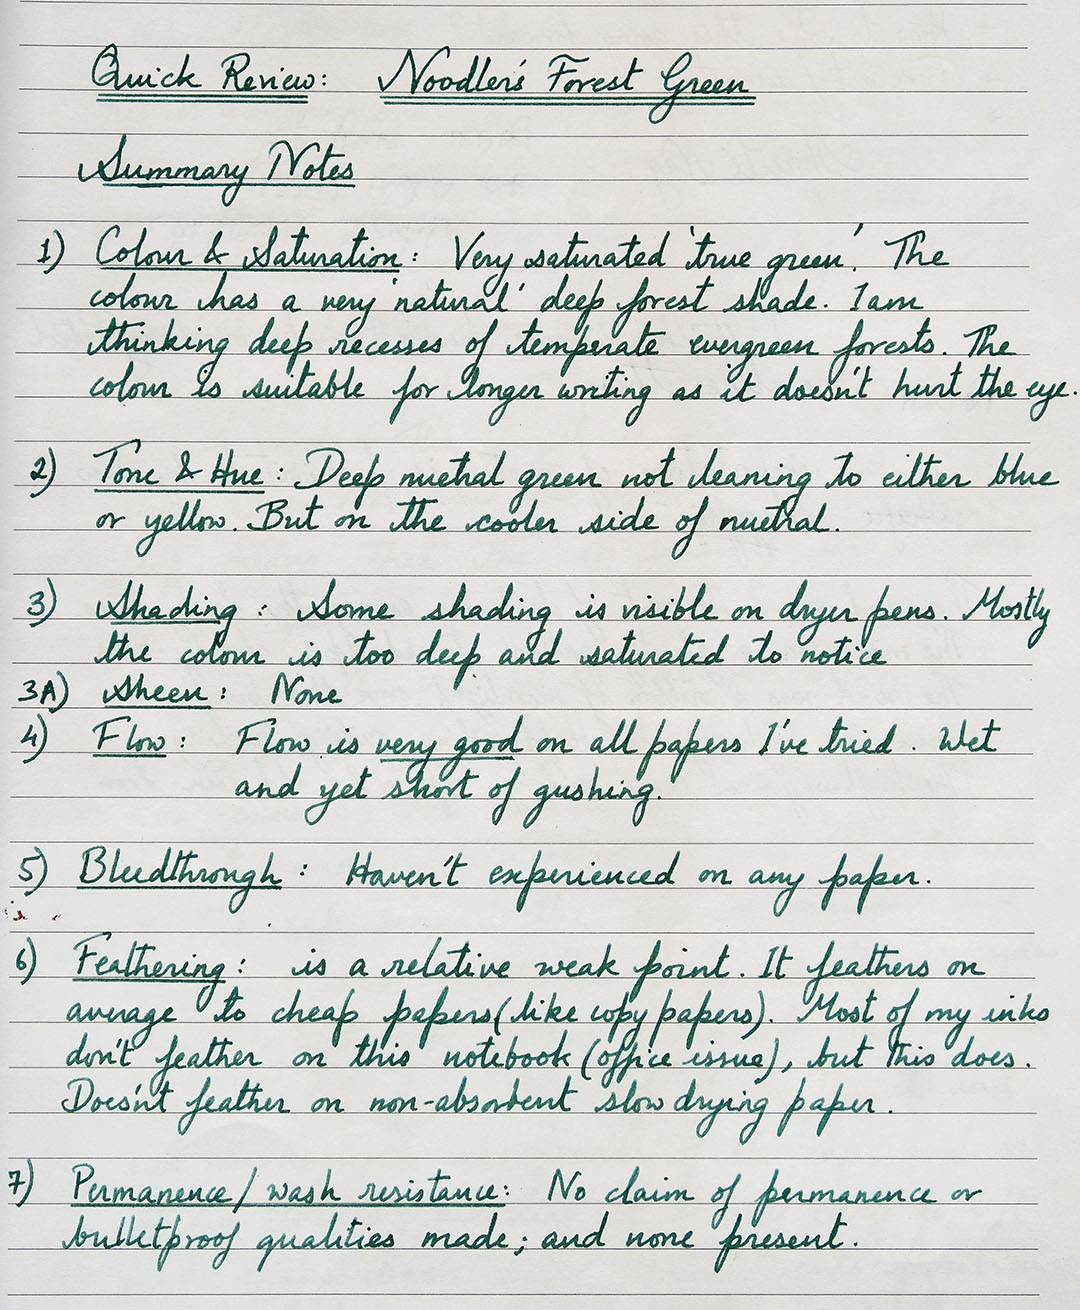 Quick Review: Noodler's Forest Green
Summary Notes
1) Colour & Saturation: Very saturated 'true green'. The
colour has a very 'natural' deep forest shade. I am
thinking deep recesses of temperate evergreen forests. The
colour is suitable for longer writing as it doesn't hurt the eye.
2) Tone & Hue: Deep nuetral green not leaning to either blue
or yellow. But on the cooler side of nuetral.
3) Shading: Some shading is visible on dryer pens. Mostly
the colour is too deep and saturated to notice
3A) Sheen: None
4) Flow: Flow is very good on all papers I've tried. Wet
and yet short of gushing.
5) Bleedthrough: Haven't experienced on any paper.
6) Feathering: is a relative weak point. It feathers on
average to cheap papers (like copy papers). Most of my inks
don't feather on this notebook (office issue), but this does.
Doesn't feather on non-absorbent slow drying paper.
7) Permanence/wash resistance: No claim of permanence or
bulletproof qualities made; and none present.